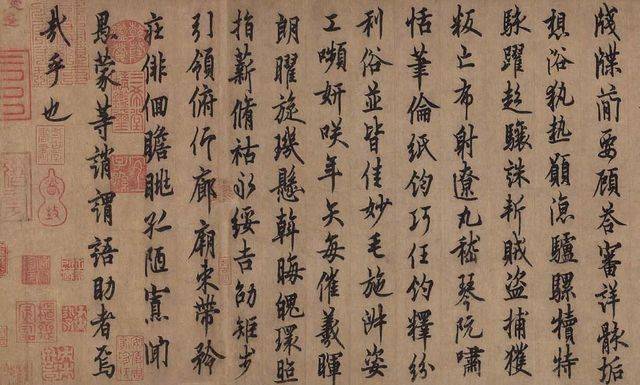 牋牒簡要顧答審詳骸垢
想浴執熱願涼驢騾犢特
駭躍超驤誅斬賊盜捕獲
叛亡布射遼丸嵇琴阮嘯
恬筆倫紙鈞巧任釣釋紛
利俗並皆佳妙毛施淑姿
工嚬妍咲年矢每催羲暉
朗曜旋璣懸斡晦魄環照
指薪脩祜永綏吉劭矩步
引領俯仰廊廟束帶矜
莊徘徊瞻眺孤陋寡聞
愚蒙等誚謂語助者焉
哉乎也